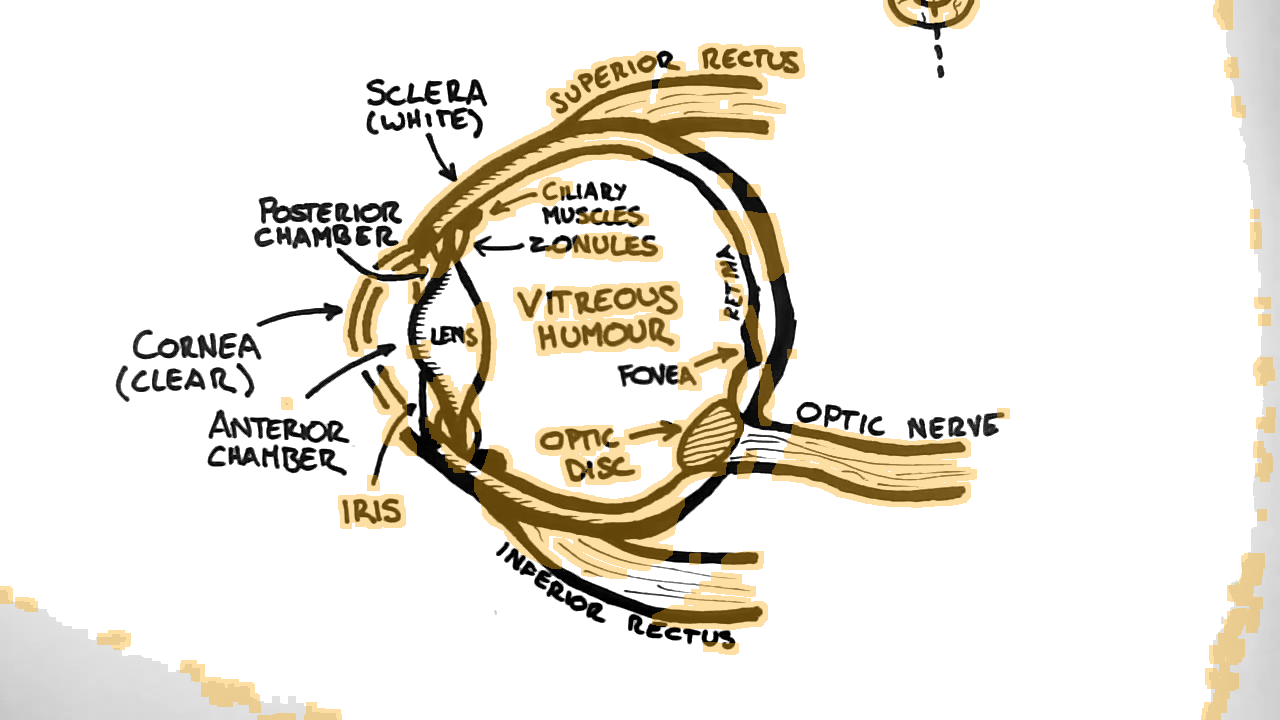 SUPERIOR RECTUS
SCLERA
(WHITE)
CILIARY
MUSCLES
ZONULES
POSTERIOR
CHAMBER
RETINA
VITREOUS
HUMOUR
LENS
CORNEA
(CLEAR)
FOVEA
ANTERIOR
CHAMBER
OPTIC NERVE
OPTIC
DISC
IRIS
INFERIOR RECTUS